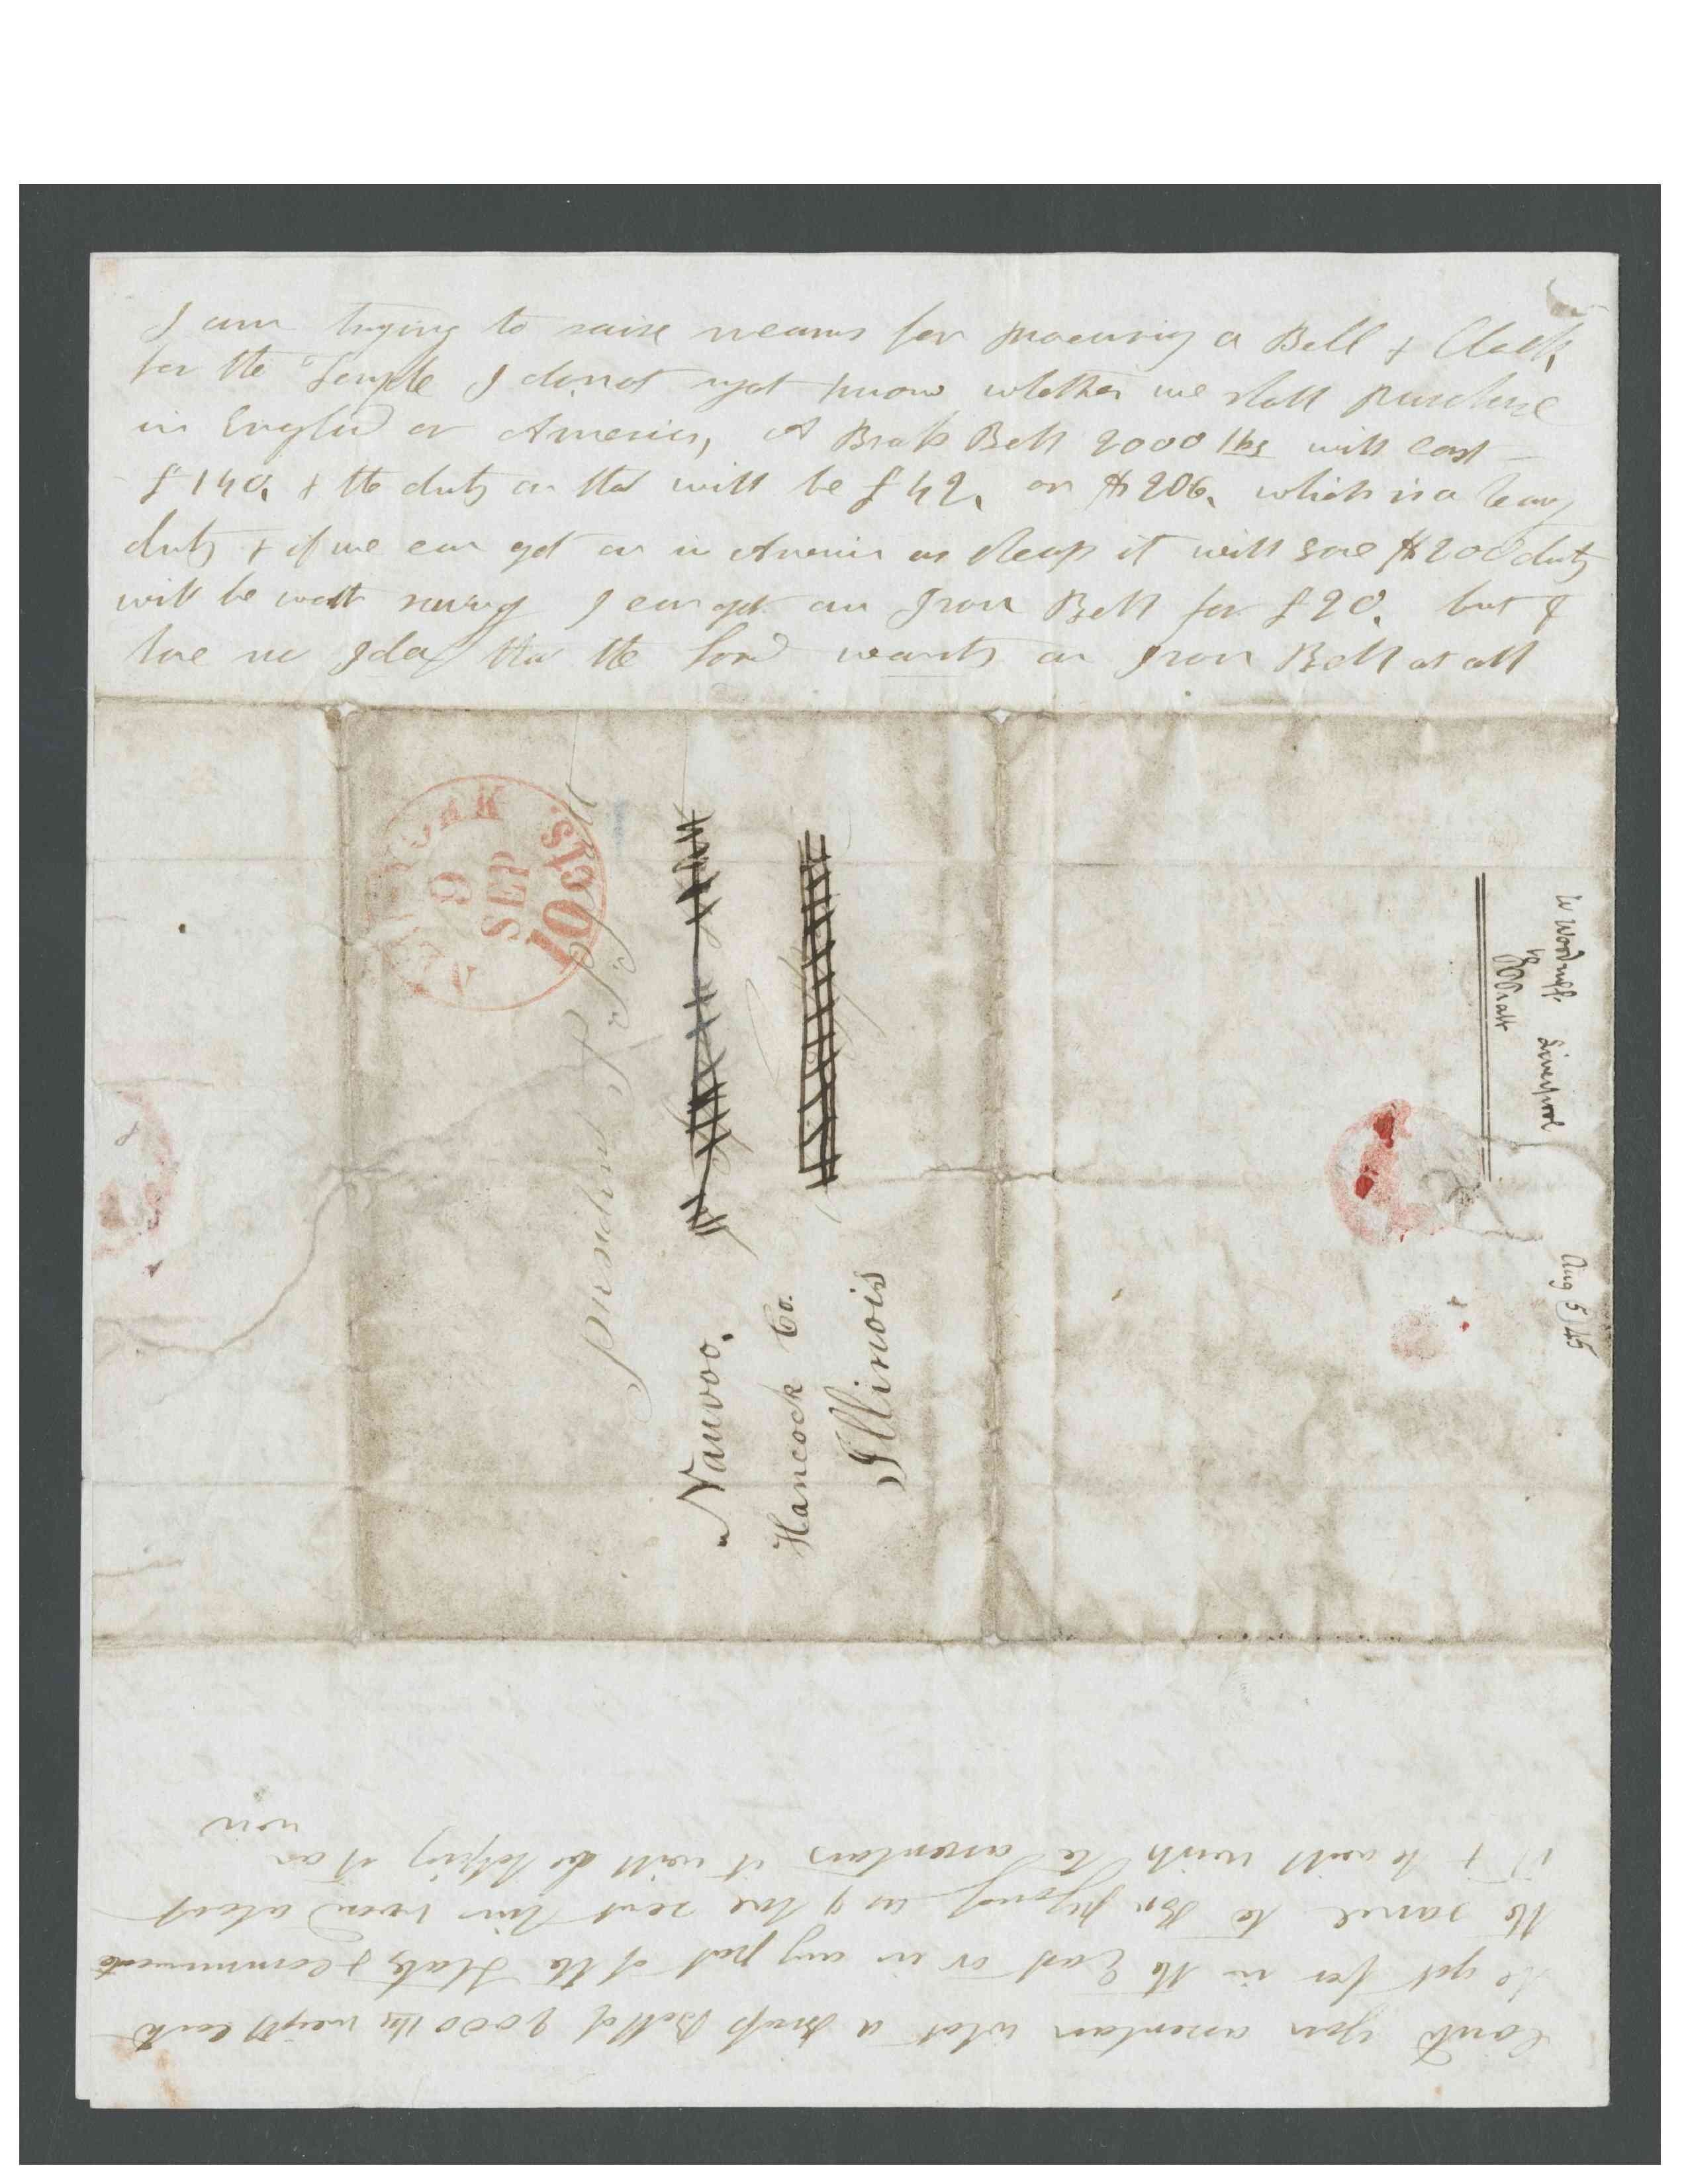 I am trying to raise means for procuring a Bell & Clock
for the Temple I do not yet know whether we shall purchase
in England or America, A Brass Bell 2000 lbs will cost
£140, & the duty on that will be £42, or $206, which is a heavy
duty & if we can get on in America as cheap it will save $200 duty
will be worth saving I can get an Iron Bell for £20, but I
have no Idea that the Lord wants an Iron Bell at all
NEW YORK
9
SEP
10 cts.
President P. P. Pratt
Nauvoo.
Hancock Co.
Illinois
W Woodruff. Liverpool Aug 5, 45
to
PPPratt
Could you ascertain what a brass Bell of 2000 lbs weight could
be got for in the East or in any part of the States & communicate
the same to Br Young as I have sent him word about
it & he will wish to ascertain it will be helping it on